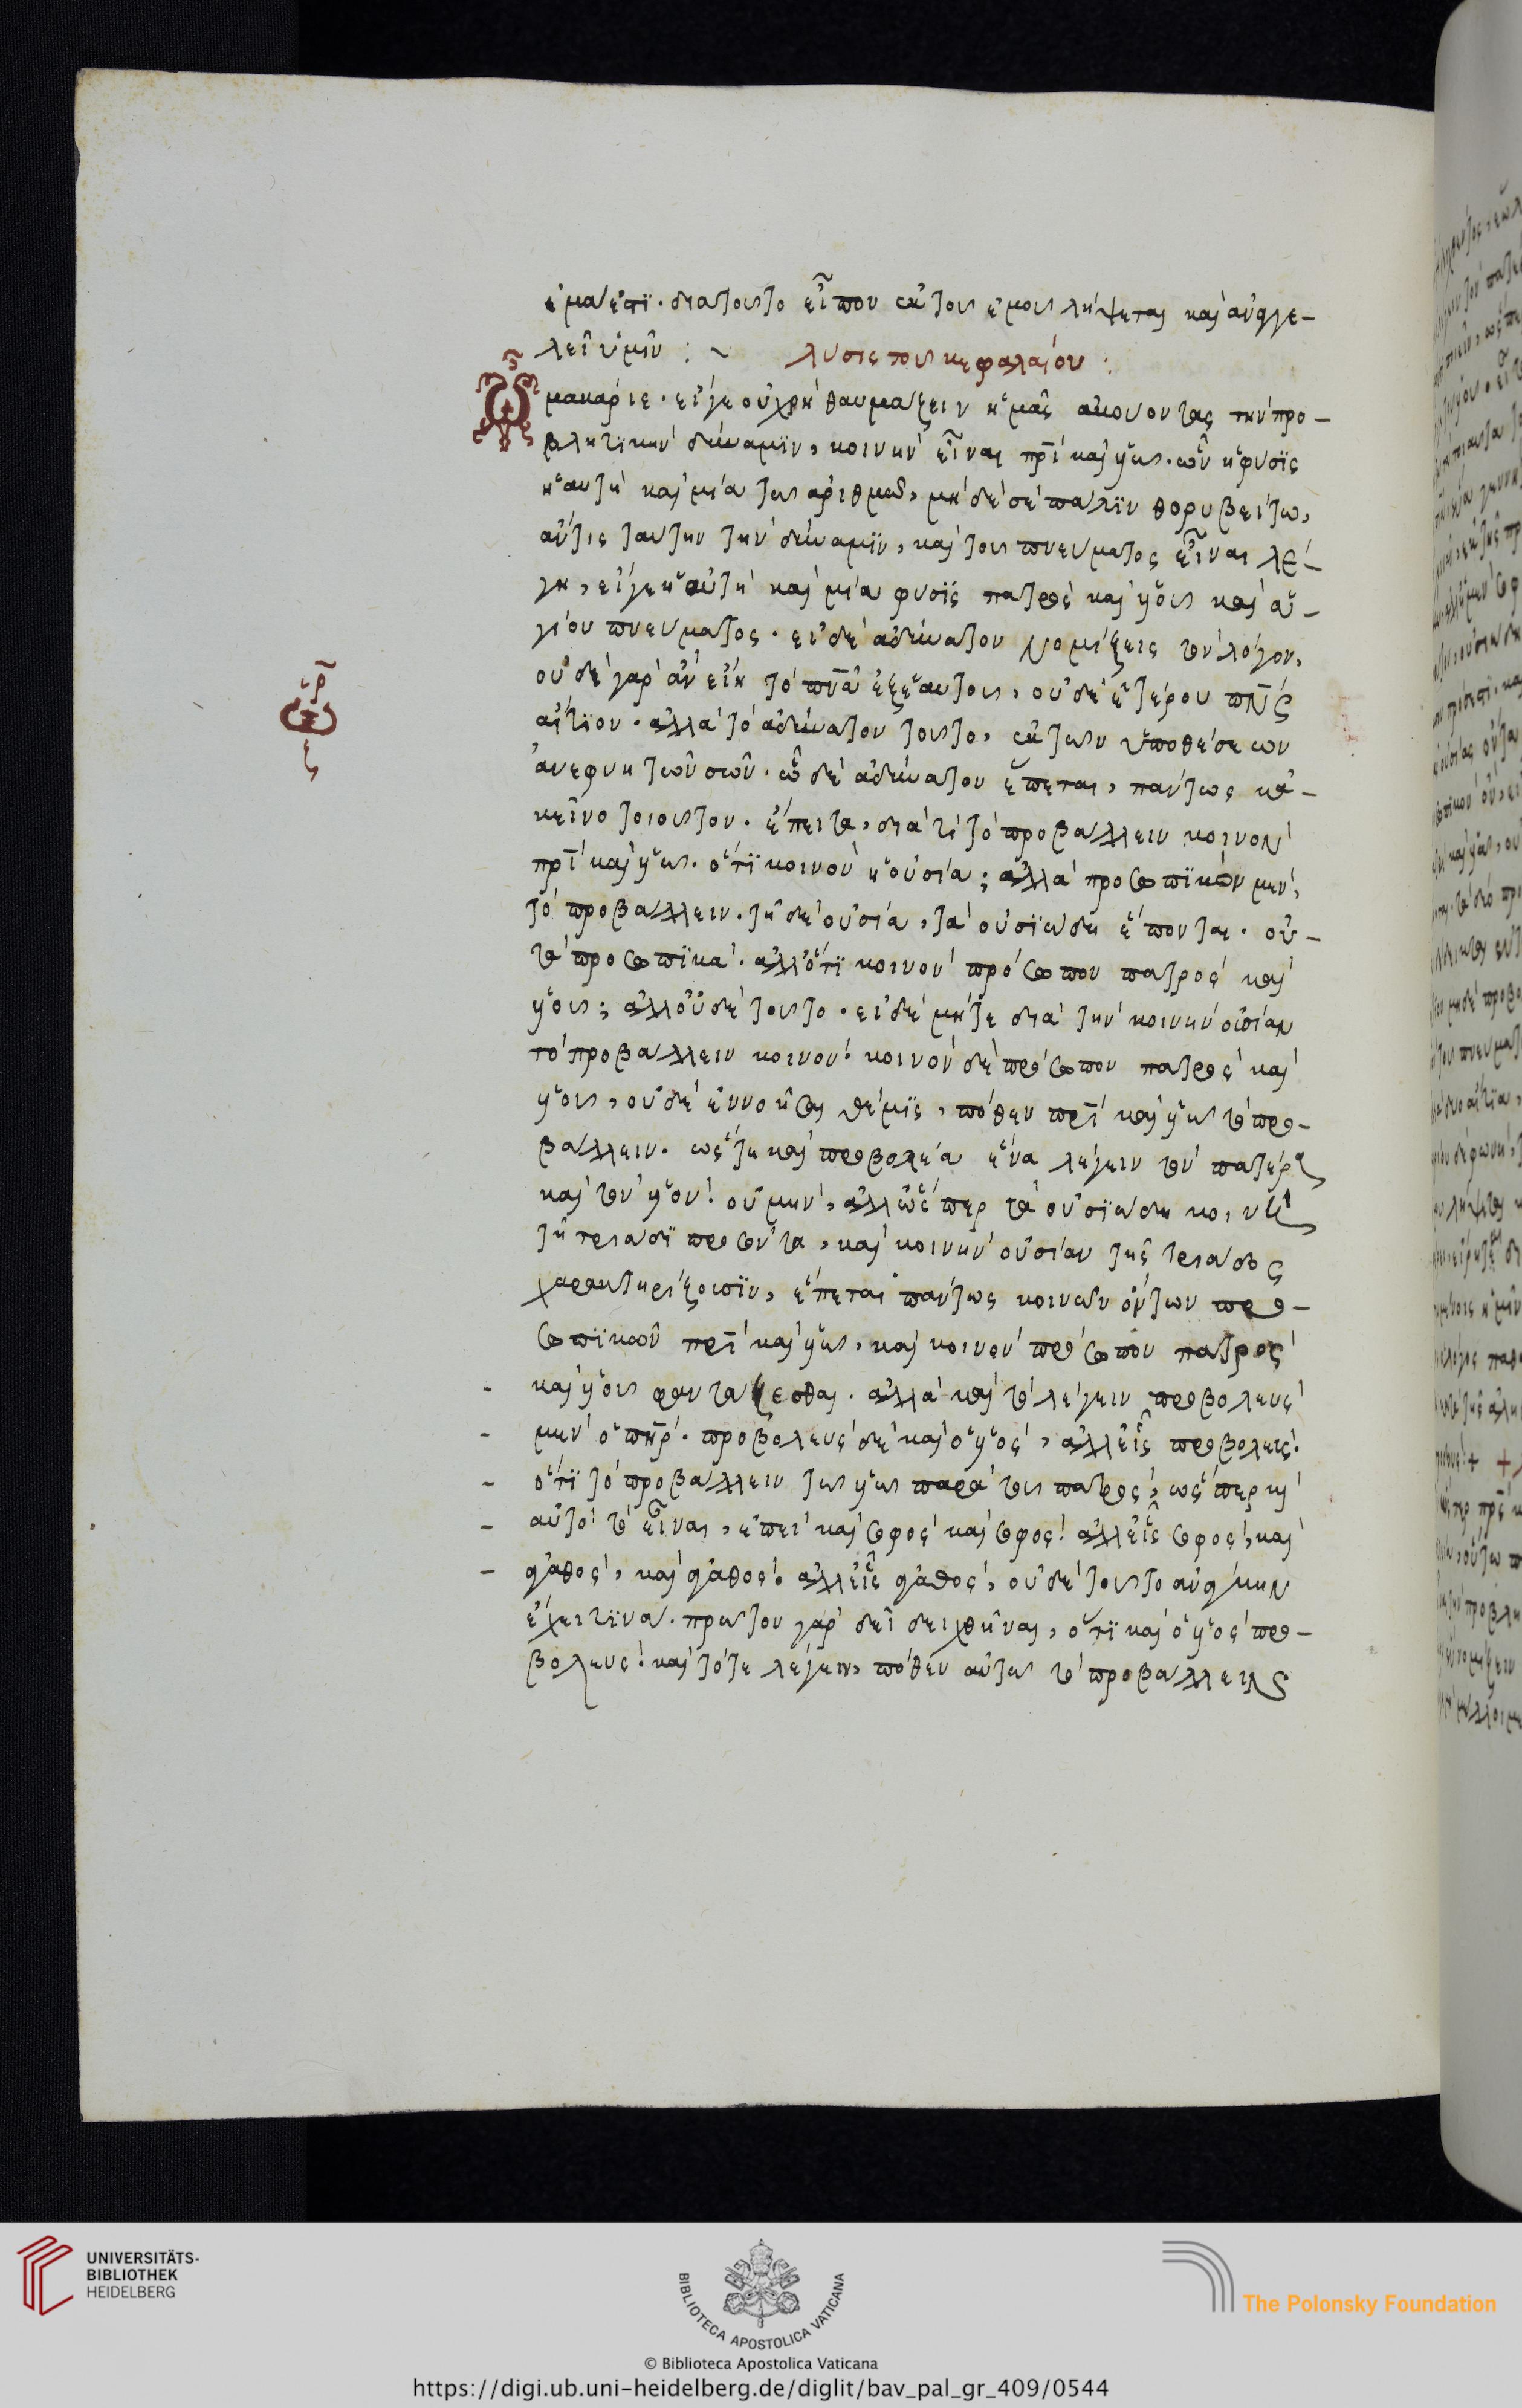 ἐμά ἐστι. διατοῦτο εἶπον ἐκ τοῦ ἐμοῦ λήψεται καὶ ἀναγγε-
λεῖ ὑμῖν : ~ λύσις τοῦ κεφαλαίου :
Ὦ μακάριε. εἴγε οὐ χρὴ θαυμάζειν ἡμᾶς ἀκούοντας τὴν προ-
βλητικὴν δύναμιν, κοινὴν εἶναι πρὶ καὶ υἱῶ. ὧν ἡ φύσις
ἡ αὐτὴ καὶ μία τῶ ἀριθμῶ, μὴ δέ σε πάλιν θορυβείτω,
αὖτις ταύτην τὴν δύναμιν, καὶ τοῦ πνεύματος εἶναι λέ-
γη, εἴγε ἡ αὐτὴ καὶ μία φύσις πατρὸς καὶ υἱοῦ καὶ ἁ-
γίου πνεύματος. εἰ δὲ ἀδύνατον νομίζεις τὸν λόγον,
οὐδὲ γὰρ ἂν εἴη τὸ πνᾶ ἐξ ἑαυτοῦ, οὐδὲ ἑτέρου πνς
αἴτιον. ἀλλὰ τὸ ἀδύνατον τοῦτο, ἐκ τῶν ὑποθέσεων
ἀνεφύη τῶν σῶν. ὧ δὲ ἀδύνατον ἕπεται, πάντως κἀ-
κεῖνο τοιοῦτον. ἔπειτα, διὰ τί τὸ προβάλλειν κοινὸν
πρὶ καὶ υἱῶ. ὅτι κοινὸν ἡ οὐσία; ἀλλὰ προσωπικὸν μὲν,
τὸ προβάλλειν. τῇ δὲ οὐσία, τὰ οὐσιώδη ἕπονται. οὐ
τὰ προσωπικά. ἀλλ' ὅτι κοινὸν πρόσωπον πατρὸς καὶ
υἱοῦ; ἀλλ' οὐδὲ τοῦτο. εἰ δὲ μήτε διὰ τὴν κοινὴν οὐσίαν
τὸ προβάλλειν κοινόν. κοινὸν δὲ πρόσωπον πατρὸς καὶ
υἱοῦ, οὐδὲ ἐννοῆσαι θέμις, πόθεν πρὶ καὶ υἱῶ τὸ προ-
βάλλειν. ὥς τε καὶ προβολέα ἕνα λέγειν τὸν πατέρα
καὶ τὸν υἱόν. οὐ μὴν, ἀλλ' ὥσπερ τὰ οὐσιώδη κοινῆ
τῇ τριάδι προσόντα, καὶ κοινὴν οὐσίαν τῆς τριάδος
χαρακτηρίζουσιν, ἕπεται πάντως κοινῶν ὄντων προ-
σωπικῶν πρὶ καὶ υἱῶ, καὶ κοινὸν πρόσωπον πατρὸς
καὶ υἱοῦ φαντάζεσθαι. ἀλλὰ καὶ τὸ λέγειν προβολεὺς
μὲν ὁ πηρ. προβολεὺς δὲ καὶ ὁ υἱὸς, ἀλλ' εἷς προβολεύς.
ὅτι τὸ προβάλλειν τῶ υἱῶ παρὰ τοῦ πατρὸς, ὥς περ καὶ
αὐτὸ τὸ εἶναι, ἐπεὶ καὶ σοφὸς καὶ σοφός. ἀλλ' εἷς σοφὸς, καὶ
ἀγαθὸς, καὶ ἀγαθός. ἀλλ' εἷς ἀγαθὸς, οὐδὲ τοῦτο ἀνάγκην
ἔχει τινά. πρῶτον γὰρ δεῖ δειχθῆναι, ὅτι καὶ ὁ υἱὸς προ-
βολεύς. καὶ τότε λέγειν, πόθεν αὐτῶ τὸ προβάλλειν
UNIVERSITÄTS-
BIBLIOTHEK
HEIDELBERG
BIBLIOTECA APOSTOLICA VATICANA
The Polonsky Foundation
© Biblioteca Apostolica Vaticana
https://digi.ub.uni-heidelberg.de/diglit/bav_pal_gr_409/0544